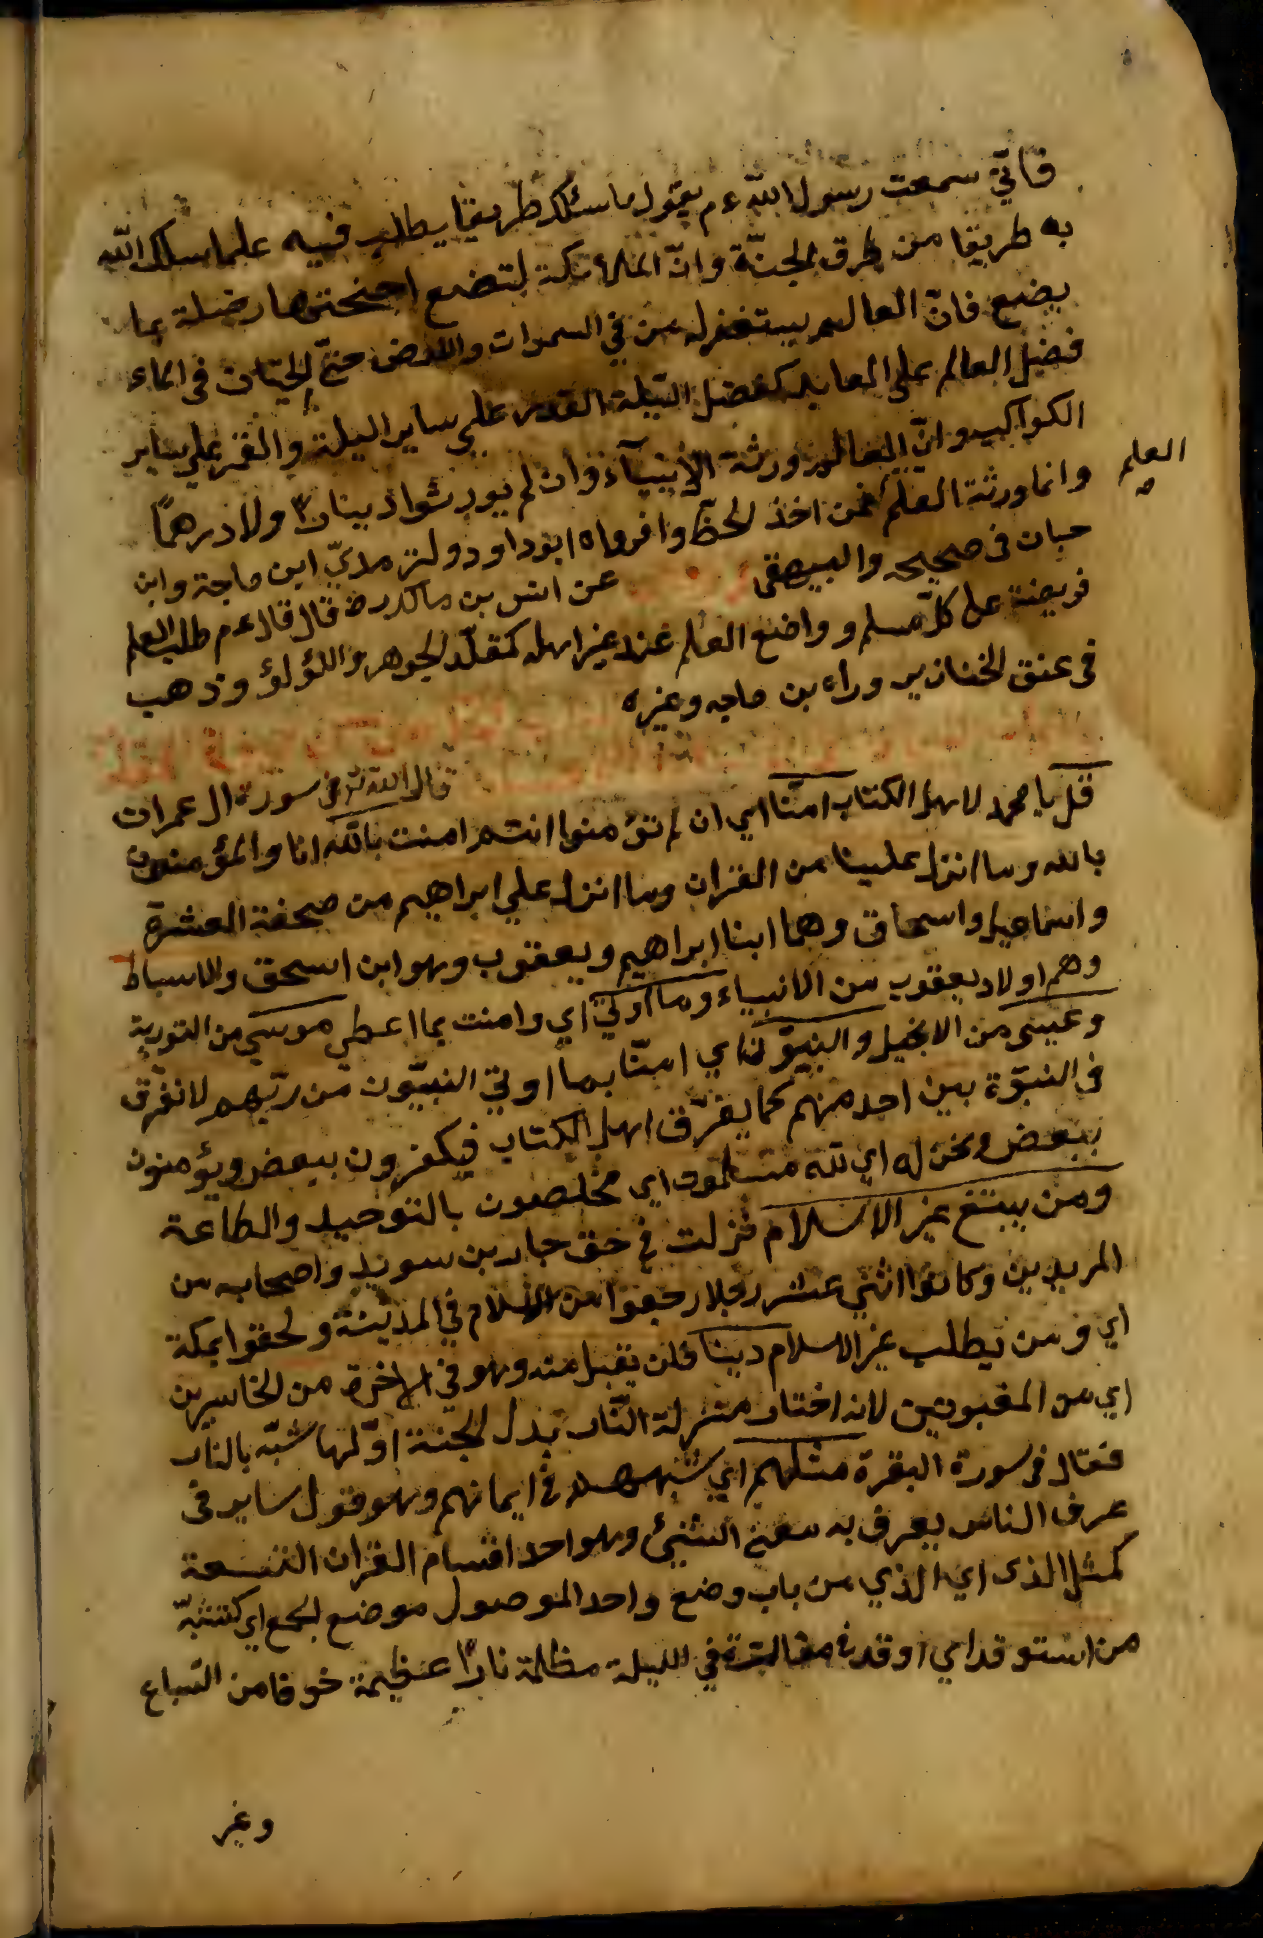 فانّي سمعت رسول اللّه ءم يقول ما سئلك طريقا يطلب فيه علما سلك اللّه
به طريقا من طرق الجنّة وانّ الملائكة لتضع اجنحتها رضيلة بما
يضبع فانّ العالم يستغفر له من في السموات والارض حتّي الحيتان في الماء
فضل العالم علي العابد كفضل الليلة القدر علي ساير الليلة والقمر علي ساير
الكواكب وانّ العالم ورثة الأنبيآء وان لم يورثوا دينارًا ولا درهمًا
العلم
وانما ورثة العلم فمن اخذ الحظّ وافر رواه ابو داود ولترمذيّ ابن ماجة وابن
حبان في صحيحه والبيهقي عن انس بن مالك رض قال قال ءم طلب العلم
فريضة علي كلّ مسلم وواضع العلم عند غير اهله كمقلّد الجوهر واللؤلؤ وذهب
في عنق الخنازير وراه بن ماجه وغيره
قال اللّه تع في سورة ال عمران
قل يا محمد لاهل الكتاب امنّا اي ان لم تؤمنوا انتم امنت باللّه انا والمؤمنون
بالله وما انزل علينا من القران وما انزل علي ابراهيم من صحفة العشرة
واسماعيل واسحاق وهما ابنا ابراهيم ويعقوب وهو ابن اسحق والاسباط
وهم اولاد يعقوب من الانبياء وما اوتي اي وامنت بما اعطي موسي من التورية
وعيسي من الانجيل والنبيّون اي امنّا بما اوتي النبيّون من ربّهم لا نفرّق
في النبوّة بين احد منهم كما يفرّق اهل الكتاب فيكفرون ببعض ويؤمنون
ببعض ونحن له اي للّه مسلمون اي مخلصون بالتوحيد والطاعة
ومن يبتغ غير الاسلام نزلت في حق جار بن سويد واصحابه من
المريدين وكانوا اثني عشر رجلا رجعوا من الاسلام في المدينة ولحقوا بمكة
اي ومن يطلب غير الاسلام دينا فلن يقبل منه وهو في الاخرة من الخاسرين
اي من المغبونين لانه اختار منزلة النّار بدل الجنة اوّلها شبّه بالنار
فقال في سورة البقرة مثلهم اي شبههم في ايمانهم وهو قول ساير في
عرف الناس يعرف به معني الشيئ وهو احد اقسام القران التسعة
كمثل الذي اي الذي من باب وضع واحد الموصول موضع الجمع اي كتشبّه
من استوقد اي اوقد في مفالة في الليلة مظلمة نارًا عظيمة خوفا من السّباع
وغير